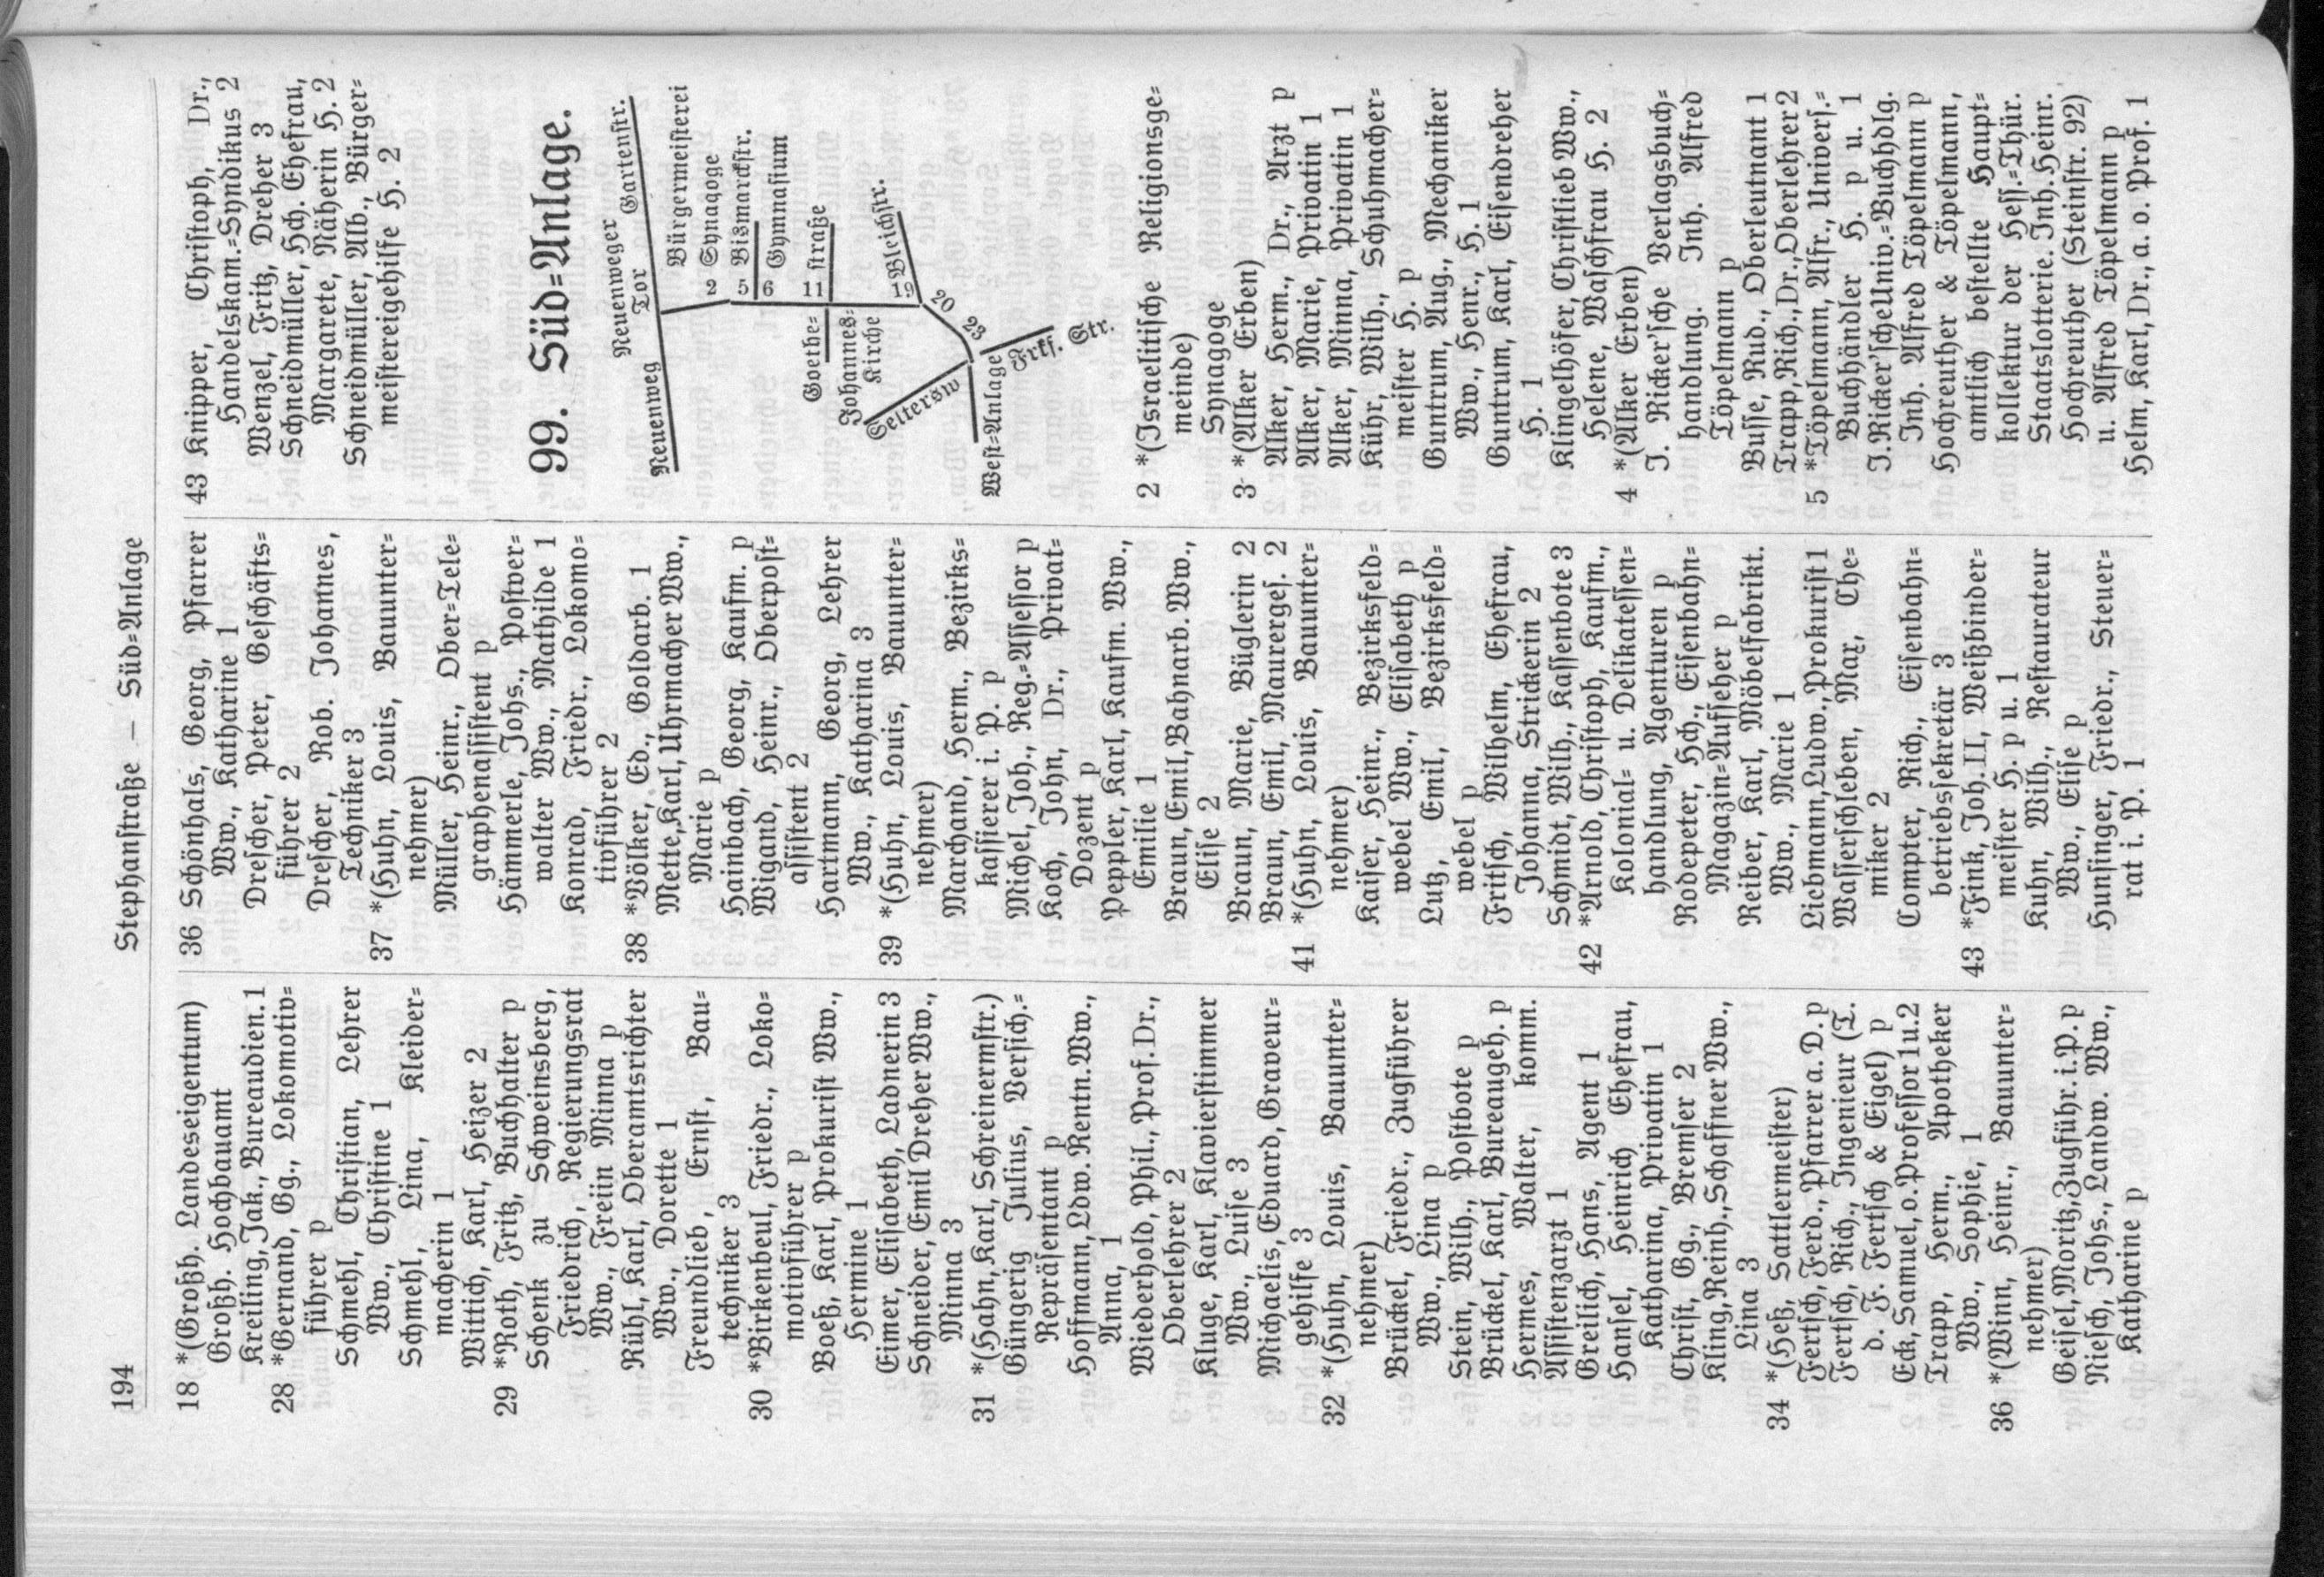 194
Stephanstraße — Süd=Anlage
18 *(Großh. Landeseigentum)
Großh. Hochbauamt
Kreiling, Jak., Bureaudien. 1
28 *Gernand, Gg., Lokomotiv=
führer p
Schmehl, Christian, Lehrer
Ww., Christine 1
Schmehl, Lina, Kleider=
macherin 1
Wittich, Karl, Heizer 2
29 *Roth, Fritz, Buchhalter p
Schenk zu Schweinsberg,
Friedrich, Regierungsrat
Ww., Freiin Minna p
Rühl, Karl, Oberamtsrichter
Ww., Dorette 1
Freundlieb, Ernst, Bau=
techniker 3
30 *Birkenbeul, Friedr., Loko=
motivführer p
Boeß, Karl, Prokurist Ww.,
Hermine 1
Eimer, Elisabeth, Ladnerin 3
Schneider, Emil Dreher Ww.,
Minna 3
31 *(Hahn, Karl, Schreinermstr.)
Güngerig Julius, Versich.=
Repräsentant p
Hoffmann, Ldw. Rentn. Ww.,
Anna, 1
Wiederhold, Phil., Prof. Dr.,
Oberlehrer 2
Kluge, Karl, Klavierstimmer
Ww., Luise 3
Michaelis, Eduard, Graveur=
gehilfe 3
32 *(Huhn, Louis, Bauunter=
nehmer)
Brückel, Friedr., Zugführer
Ww., Lina p
Stein, Wilh., Postbote p
Brückel, Karl, Bureaugeh. p
Hermes, Walter, komm.
Assistenzarzt 1
Greilich, Hans, Agent 1
Hansel, Heinrich Ehefrau,
Katharina, Privatin 1
Christ, Gg., Bremser 2
Kling, Reinh., Schaffner Ww.,
Lina 3
34 *(Heß, Sattlermeister)
Fertsch, Ferd., Pfarrer a. D. p
Fertsch, Rich., Ingenieur (T.
d. F. Fertsch & Eigel) p
Eck, Samuel, o. Professor 1 u. 2
Trapp, Herm., Apotheker
Ww., Sophie, 1
36 *(Winn, Heinr., Bauunter=
nehmer)
Geisel, Moritz, Zugführ. i. P. p
Niesch, Johs., Landw. Ww.,
Katharine p
36 Schönhals, Georg, Pfarrer
Ww., Katharine 1
Drescher, Peter, Geschäfts=
führer 2
Drescher, Rob. Johannes,
Techniker 3
37 *(Huhn, Louis, Bauunter=
nehmer)
Müller, Heinr., Ober=Tele=
graphenassistent p
Hämmerle, Johs., Postver=
walter Ww., Mathilde 1
Konrad, Friedr., Lokomo=
tivführer 2
38 *Völker, Ed., Goldarb. 1
Mette, Karl, Uhrmacher Ww.,
Marie p
Hainbach, Georg, Kaufm. p
Wigand, Heinr., Oberpost=
assistent 2
Hartmann, Georg, Lehrer
Ww., Katharina 3
39 *(Huhn, Louis, Bauunter=
nehmer)
Marchand, Herm., Bezirks=
kassierer i. P. p
Michel, Joh., Reg.=Assessor p
Koch, John, Dr., Privat=
Dozent p
Peppler, Karl, Kaufm. Ww.,
Emilie 1
Braun, Emil, Bahnarb. Ww.,
Elise 2
Braun, Marie, Büglerin 2
Braun, Emil, Maurerges. 2
41 *(Huhn, Louis, Bauunter=
nehmer)
Kaiser, Heinr., Bezirksfeld=
webel Ww., Elisabeth p
Lutz, Emil, Bezirksfeld=
webel p
Fritsch, Wilhelm, Ehefrau,
Johanna, Strickerin 2
Schmidt, Wilh., Kassenbote 3
42 *Arnold, Christoph, Kaufm.,
Kolonial= u. Delikatessen=
handlung, Agenturen p
Rodepeter, Hch., Eisenbahn=
Magazin=Aufseher p
Reiber, Karl, Möbelfabrikt.
Ww., Marie 1
Liebmann, Ludw., Prokurist 1
Wasserschleben, Max, Che=
miker 2
Compter, Rich., Eisenbahn=
betriebssekretär 3
43 *Fink, Joh. II, Weißbinder=
meister H. p u. 1
Kuhn, Wilh., Restaurateur
Ww., Elise p
Hunsinger, Friedr., Steuer=
rat i. P. 1
43 Knipper, Christoph, Dr.,
Handelskam.=Syndikus 2
Wenzel, Fritz, Dreher 3
Schneidmüller, Hch. Ehefrau,
Margarete, Näherin H. 2
Schneidmüller, Alb., Bürger=
meistereigehilfe H. 2
99. Süd=Anlage.
Neuenweg
Neuenweger
Tor
Gartenstr.
Bürgermeisterei
2 Synagoge
5 Bismarckstr.
6 Gymnasium
Goethe= 11 straße
Johannes=
Kirche
19 Bleichstr.
20
23
Seltersw
West=Anlage
Frkf. Str.
2 *(Israelitische Religionsge=
meinde)
Synagoge
3 *(Alker Erben)
Alker, Herm., Dr., Arzt p
Alker, Marie, Privatin 1
Alker, Minna, Privatin 1
Kühr, Wilh., Schuhmacher=
meister H. p
Guntrum, Aug., Mechaniker
Ww., Henr., H. 1
Guntrum, Karl, Eisendreher
H. 1
Klingelhöfer, Christlieb Ww.,
Helene, Waschfrau H. 2
4 *(Alker Erben)
J. Ricker'sche Verlagsbuch=
handlung. Inh. Alfred
Töpelmann p
Busse, Rud., Oberleutnant 1
Trapp, Rich., Dr., Oberlehrer 2
5 *Töpelmann, Alfr., Univers.=
Buchhändler H. p u. 1
J. Ricker'sche Univ.=Buchhdlg.
Inh. Alfred Töpelmann p
Hochreuther & Töpelmann,
amtlich bestellte Haupt=
kollektur der Hess.=Thür.
Staatslotterie. Inh. Heinr.
Hochreuther (Steinstr. 92)
u. Alfred Töpelmann p
Helm, Karl, Dr., a. o. Prof. 1